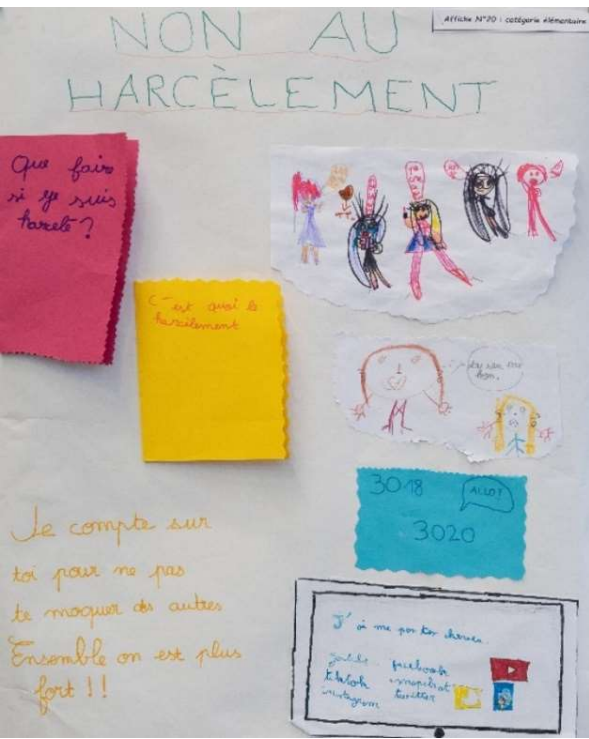 Affiche N°20 : catégorie élémentaire
NON AU
HARCÈLEMENT
Que faire
si je suis
harcelé ?
C'est quoi le
harcèlement
3018
ALLO!
3020
Je compte sur
toi pour ne pas
te moquer des autres
Ensemble on est plus
fort !!
J'ai me pas tes cheveu
facebook
tiktok snapchat
instagram twitter